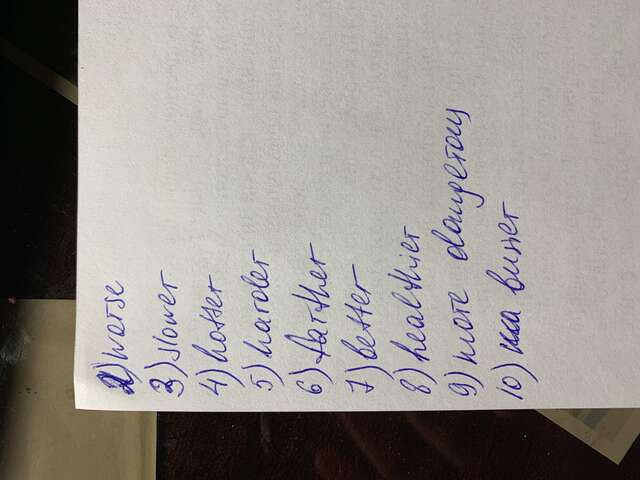 2) worse
3) slower
4) hotter
5) harder
6) farther
7) better
8) healthier
9) more dangerous
10) busier